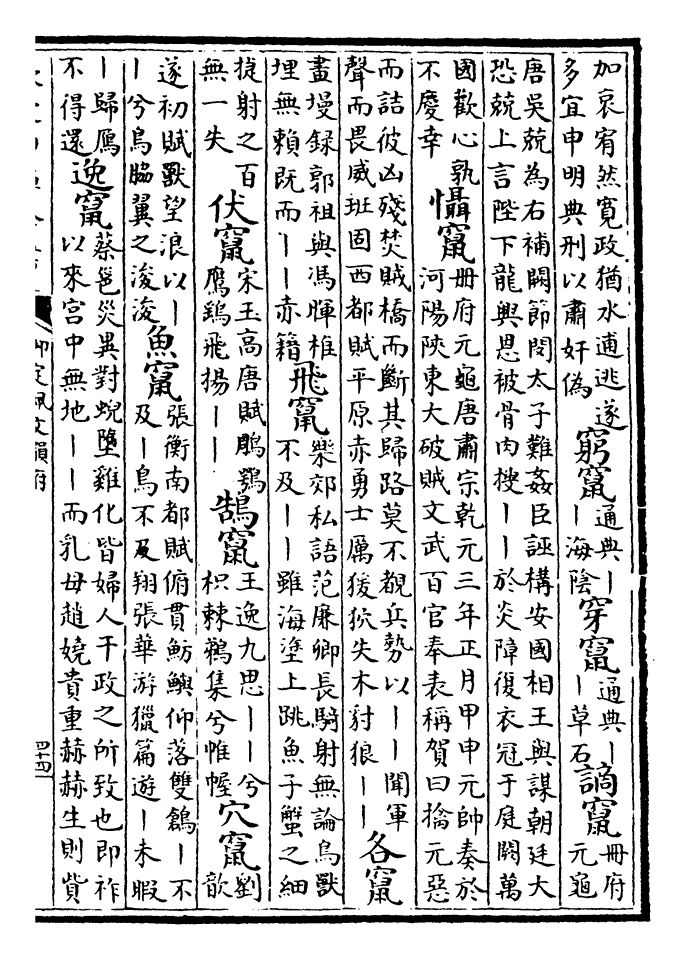 加哀宥然寛政猶水逋逃遂
多宜申明典刑以肅奸偽
窮竄
通典丨
丨海陰
穿竄
通典丨
丨草石
謫竄
冊府
元龜
唐吳兢為右補闕節閔太子難姦臣誣構安國相王與謀朝廷大
恐兢上言陛下龍興恩被骨肉搜丨丨於炎障復衣冠于庭闕萬
國歡心孰
不慶幸
懾竄
冊府元龜唐肅宗乾元三年正月甲申元帥奏於
河陽陝東大破賊文武百官奉表稱賀曰擒元惡
而詰彼凶殘焚賊橋而斷其歸路莫不覩兵勢以丨丨聞軍
聲而畏威班固西都賦平原赤勇士厲猨狖失木豺狼丨丨
各竄
畫墁録郭祖與馮暉椎
埋無賴既而丨丨赤籍
飛竄
欒郊私語范廉卿長騎射無論鳥獸
不及丨丨雖海塗上跳魚子蟹之細
㨗射之百
無一失
伏竄
宋玉高唐賦鵰鶚
鷹鷂飛揚丨丨
鵠竄
王逸九思丨丨兮
枳棘鵜集兮帷幄
穴竄
劉
歆
遂初賦獸望浪以丨
丨兮鳥脇翼之浚浚
魚竄
張衡南都賦俯貫魴鱮仰落雙鶬丨不
及丨鳥不及翔張華游獵篇遊丨未暇
丨歸鴈
不得還
逸竄
蔡邕災異對蜺墮雞化皆婦人干政之所致也即祚
以來宮中無地丨丨而乳母趙嬈貴重赫赫生則貲
御定佩文韻府
四十四